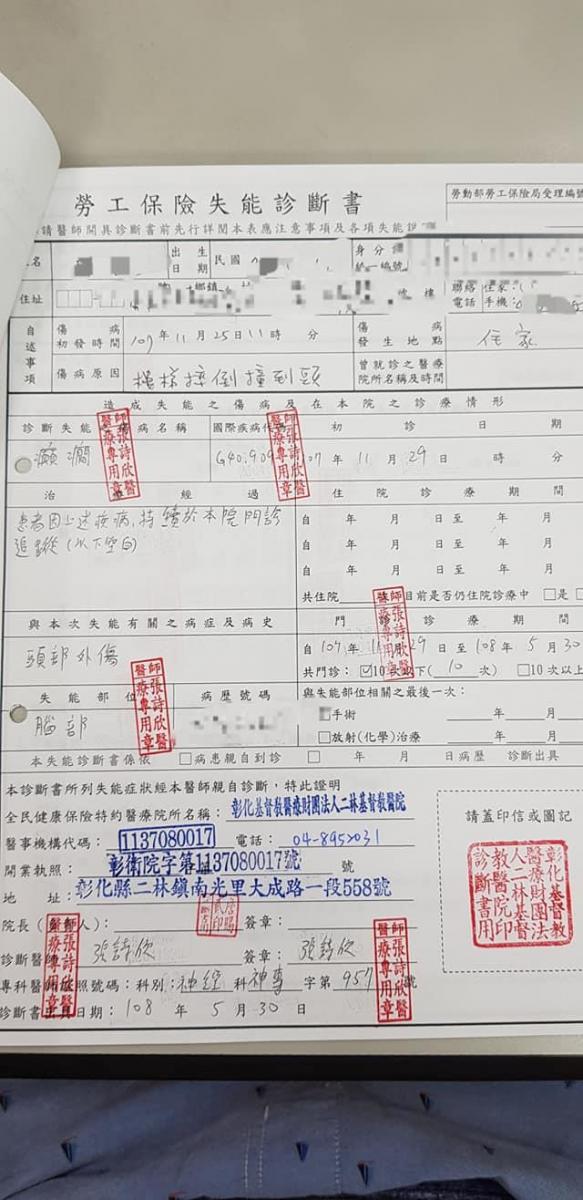 勞工保險失能診斷書
勞動部勞工保險局受理編號
請醫師開具診斷書前先行詳閱本表應注意事項及各項失能說
名 出生日期 民國 身分 統一編號
住址 鄉鎮 號 樓 聯絡電話 住家:( 手機:0
自述事項 傷病初發時間 107年11月25日11時 分 傷病發生地點 住家
傷病原因 摔倒撞到頭 曾就診之醫療院所名稱及時間
造成失能之傷病及在本院之診療情形
診斷失能 傷病名稱 國際疾病代 初診日期
癲癇 G40.909 107年11月29日 時 分
治 經過 住院診療期間
患者因上述疾病,持續於本院門診
追蹤(以下空白)
自 年 月 日至 年 月
自 年 月 日至 年 月
自 年 月 日至 年 月
共住院 目前是否仍住院診療中 □是
與本次失能有關之病症及病史 門診診療期間
頭部外傷 自107年11月29日至108年5月30
共門診:☑10次以下(10次) □10次以上
失能部位 病歷號碼 與失能部位相關之最後一次:
腦部 □手術 年 月
□放射(化學)治療 年 月
本失能診斷書係依 □病患親自到診 □ 年 月 日病歷 診斷出具
本診斷書所列失能症狀經本醫師親自診斷,特此證明
全民健康保險特約醫療院所名稱:彰化基督教醫療財團法人二林基督教醫院
醫事機構代碼:1137080017 電話:04-8952031
開業執照:彰衛院字第1137080017號 號
地址:彰化縣二林鎮南光里大成路一段558號
院長( 人): 簽章:
診斷醫師 張詩欣 簽章:張詩欣
專科醫師 照號碼:科別:神經科神專字第957號
診斷書出具日期:108年5月30日
請蓋印信或圖記
彰化基督教醫療財團法人二林基督教醫院印診斷書用
醫師張詩欣醫療專用章
醫師張詩欣醫療專用章
醫師張詩欣醫療專用章
醫師張詩欣醫療專用章
醫師張詩欣醫療專用章
醫師張詩欣醫療專用章